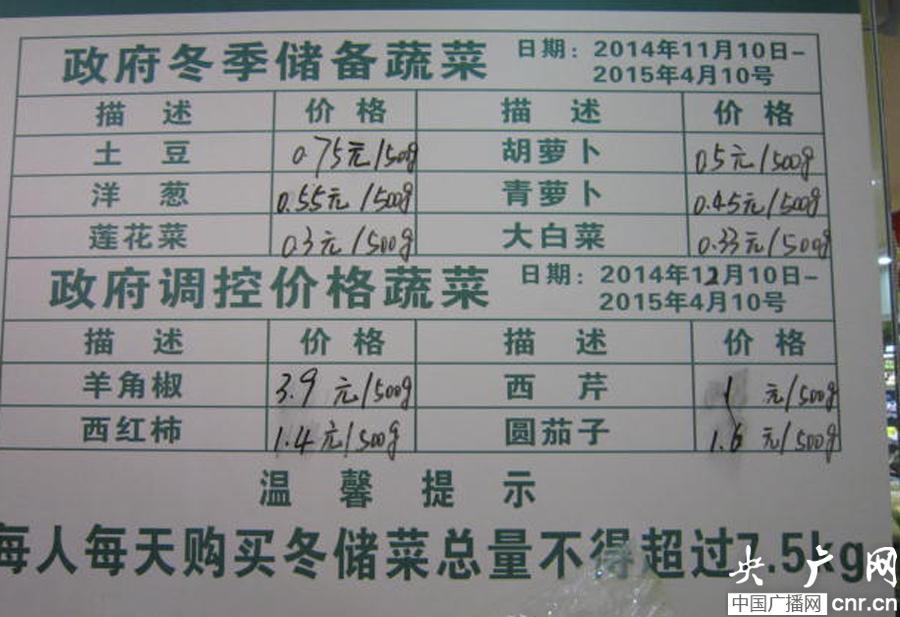 政府冬季储备蔬菜 日期：2014年11月10日-
2015年4月10号
描述 价格 描述 价格
土豆 0.75元/500g 胡萝卜 0.5元/500g
洋葱 0.55元/500g 青萝卜 0.45元/500g
莲花菜 0.3元/500g 大白菜 0.33元/500g
政府调控价格蔬菜 日期：2014年12月10日-
2015年4月10号
描述 价格 描述 价格
羊角椒 3.9元/500g 西芹 1元/500g
西红柿 1.4元/500g 圆茄子 1.6元/500g
温馨提示
每人每天购买冬储菜总量不得超过7.5kg
央广网
中国广播网 cnr.cn